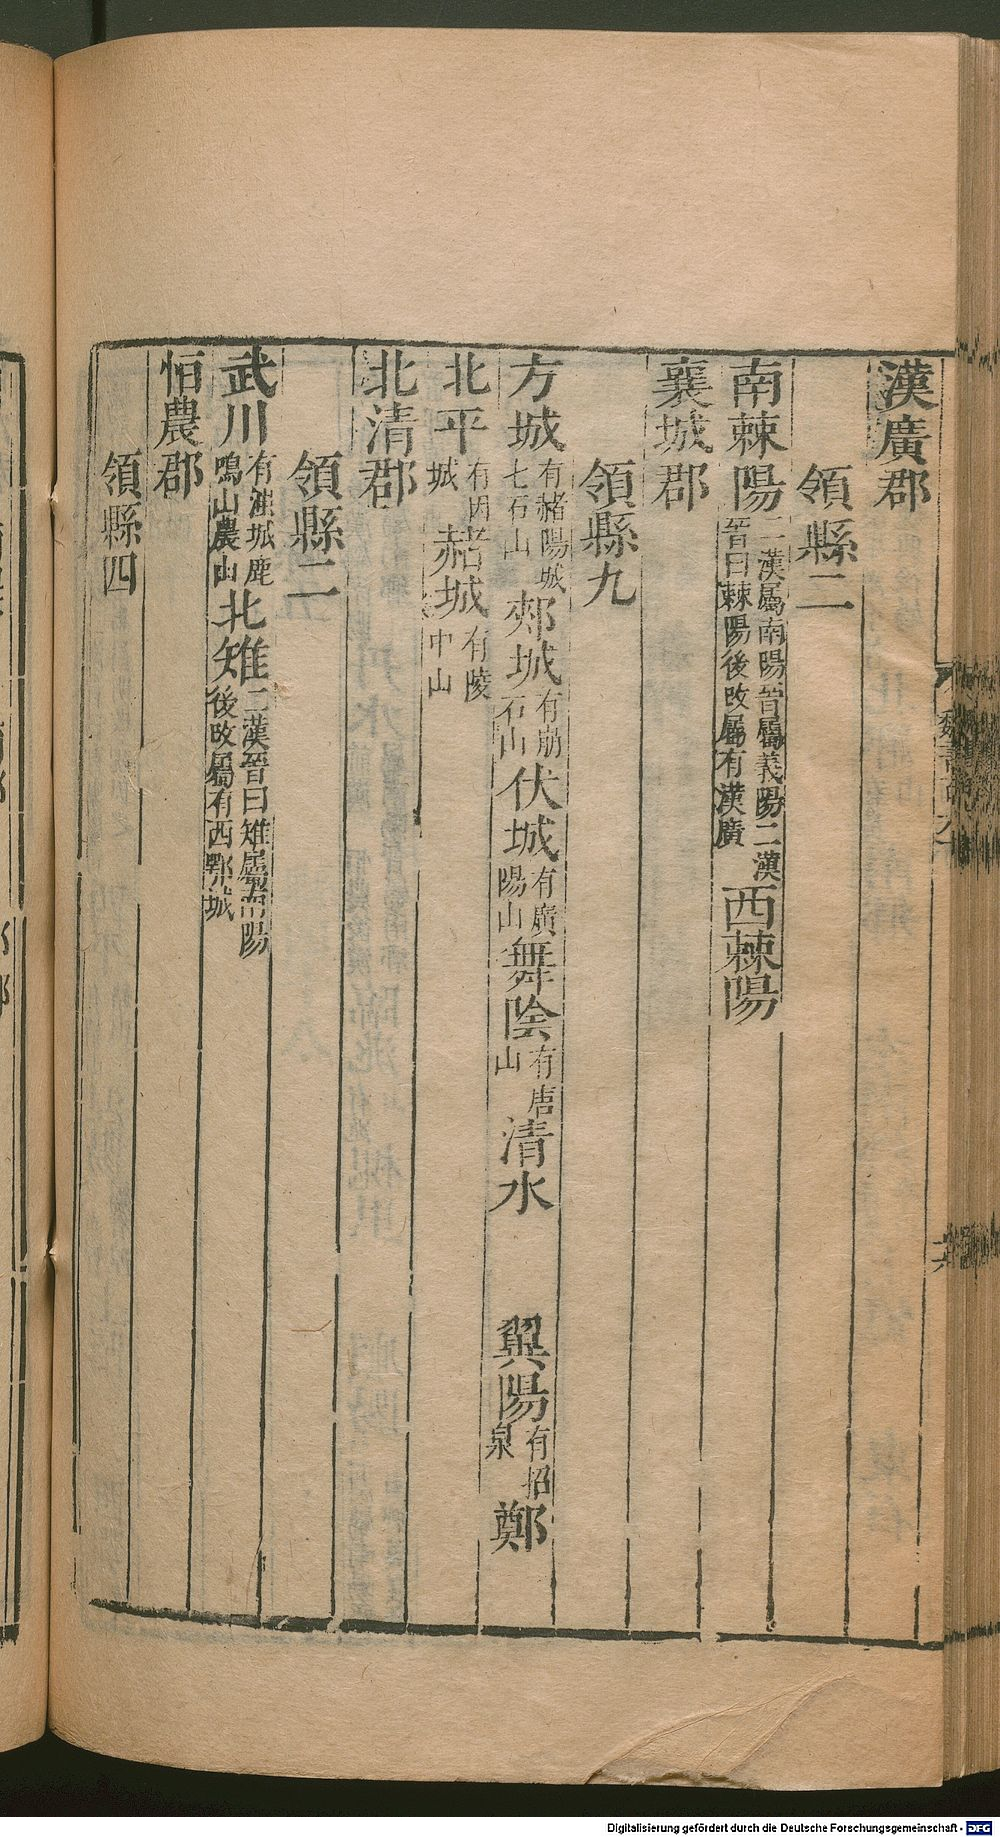 漢廣郡
領縣二
南棘陽二漢屬南陽晉屬義陽二漢晉曰棘陽後改屬有漢廣西棘陽
襄城郡
領縣九
方城有赭陽城七石山郟城有崩石山伏城有廣陽山舞陰有唐山清水 翼陽有招泉鄭
北平有因城赭城有陵中山
北清郡
領縣二
武川有滍城鹿鳴山農山北雉二漢晉曰雉屬南陽後改屬有西鄂城
恒農郡
領縣四
Digitalisierung gefördert durch die Deutsche Forschungsgemeinschaft - DFG